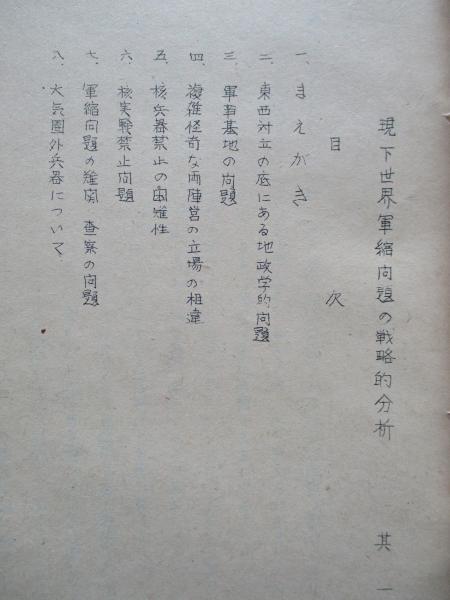 現下世界軍縮問題の戦略的分析　其一
目次
一、まえがき
二、東西対立の底にある地政学的問題
三、軍事基地の問題
四、複雑怪奇な両陣営の立場の相違
五、核兵器禁止の困難性
六、核実験禁止問題
七、軍縮問題の難関　査察の問題
八、大気圏外兵器について